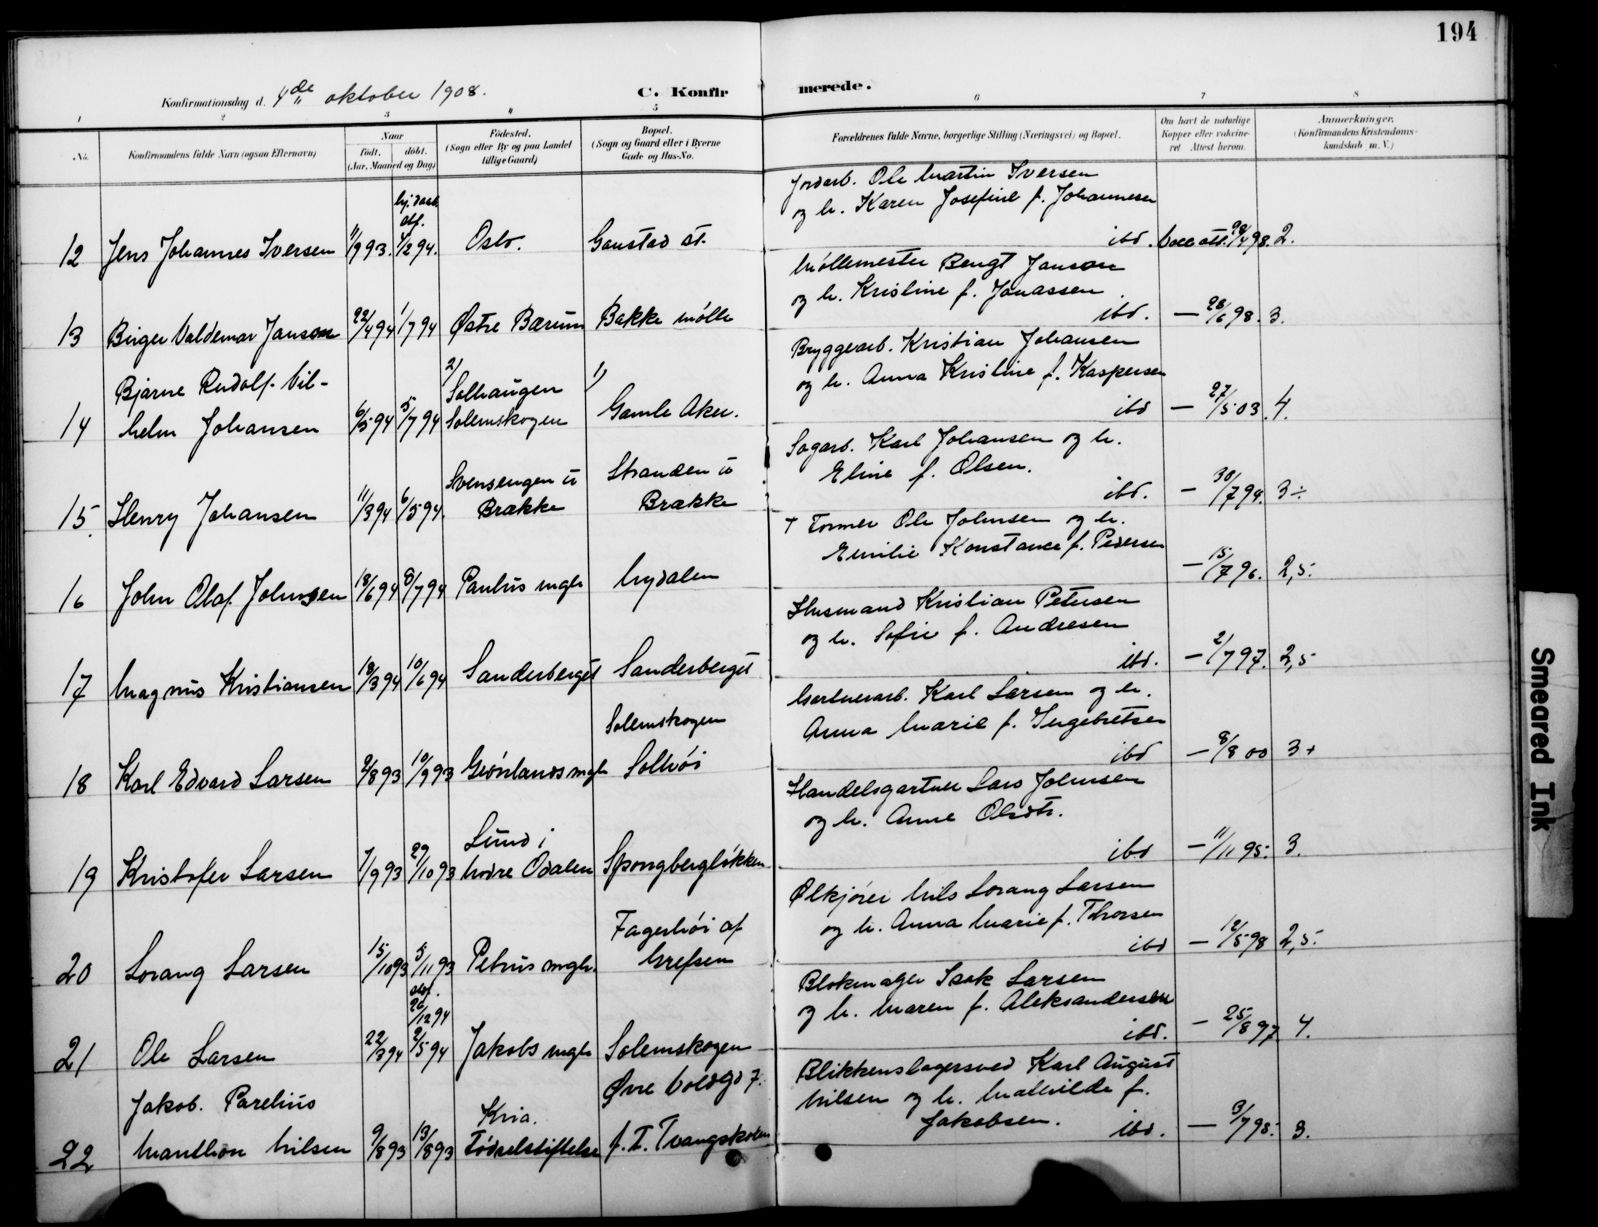 194
Konfirmationsdag d. 4de oktober 1908.
C. Konfirmerede.
1 2 3 4 5 6 7 8
No.
Konfirmandens fulde Navn (ogsaa Efternavn)
Naar
født. døbt.
(Aar, Maaned og Dag)
Fødested.
(Sogn eller By og paa Landet
tillige Gaard)
Bopæl.
(Sogn og Gaard eller i Byerne
Gade og Hus-No.
Forældrenes fulde Navne, borgerlige Stilling (Næringsvei) og Bopæl.
Om havt de naturlige
Kopper eller vakcine-
ret Attest herom.
Anmærkninger.
(Konfirmandens Kristendoms-
kundskab m. V.)
Jordarb. Ole Martin Iversen
og h. Karen Josefine f. Johannesen
12 Jens Johannes Iversen 11/9 93. 4/2 94. Oslo. Gaustad st. ibd. Vacc att. 28/4 98. 2.
Møllemester Bengt Janson
og h. Kristine f. Jonassen
13 Birger Valdemar Janson 22/4 94 1/7 94 Østre Bærum Bakke mølle ibd. — 28/6 98. 3.
Bryggearb. Kristian Johansen
og h. Anna Kristine f. Kaspersen
Bjarne Rudolf Vil-
helm Johansen
14 6/5 94 5/7 94 Solhaugen
Solemskogen Gamle Aker. ibd — 27/5 03. 4.
Sagarb. Karl Johansen og h.
Eline f. Olsen.
15. Henry Johansen 11/3 94 6/5 94. Svensengen u
Brække Stranden u
Brække ibd. — 30/7 94. 3 ÷
† Former Ole Johnsen og h.
Emilie Konstance f. Pedersen
16 John Olaf Johnsen 18/6 94 8/7 94 Paulus mgh Nydalen — 15/7 96. 2,5.
Husmand Kristian Petersen
og h. Sofie f. Andresen
17 Magnus Kristiansen 18/3 94 10/6 94 Sanderberget Sanderberget ibd. — 2/7 97. 2,5
Gartnerarb. Karl Larsen og h.
Anna Marie f. Ingebretsen
18 Karl Edvard Larsen 2/8 93 10/9 93 Grønlands mgh Solemskogen
Solhøi ibd — 8/8 00 3+
Handelsgartner Lars Johnsen
og h. Anne Olsdtr.
19 Kristofer Larsen 7/9 93 29/10 93 Lund i
Nordre Odalen Spongbergløkken ibd — 11/11 95. 3.
Ølkjører Nils Lorang Larsen
og h. Anna Marie f. Thorsen
20 Lorang Larsen 15/10 93 5/11 93 Petrus mgh. Fagerhøi af
Grefsen ibd — 12/5 98 2,5.
Blokmager Isak Larsen
og h. Maren f. Aleksandersen
21 Ole Larsen 22/3 94 26/12 94
2/5 94 Jakobs mgh Solemskogen ibd. — 25/8 97 4.
Blikkenslagersvend Karl August
Nilsen og h. Mathilde f.
Jakobsen. ibd.
Jakob. Parelius
22 Manthon Nilsen 9/8 93 13/8 93 Kria.
Fødselsstiftelse Øvre Voldgd 7.
f. T. Tvangskolen — 3/7 95. 3.
Smeared Ink